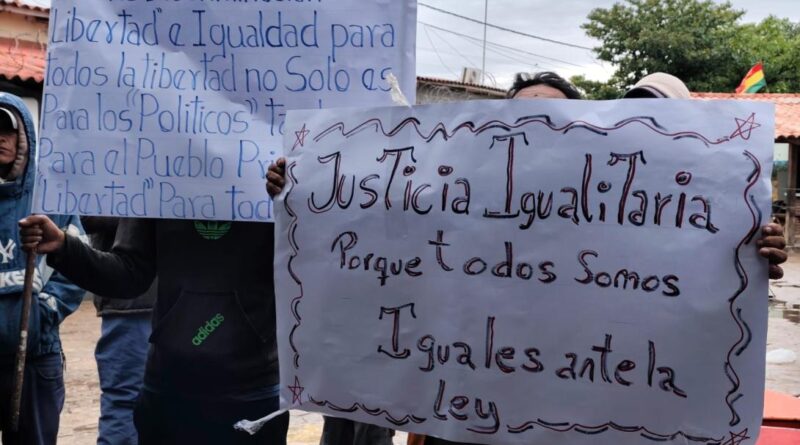 Libertad" e Igualdad para
todos la libertad no Solo es
Para los "Politicos"
Para el Pueblo
"Libertad" Para
Justicia Igualitaria
Porque todos Somos
Iguales ante la
ley
adidas